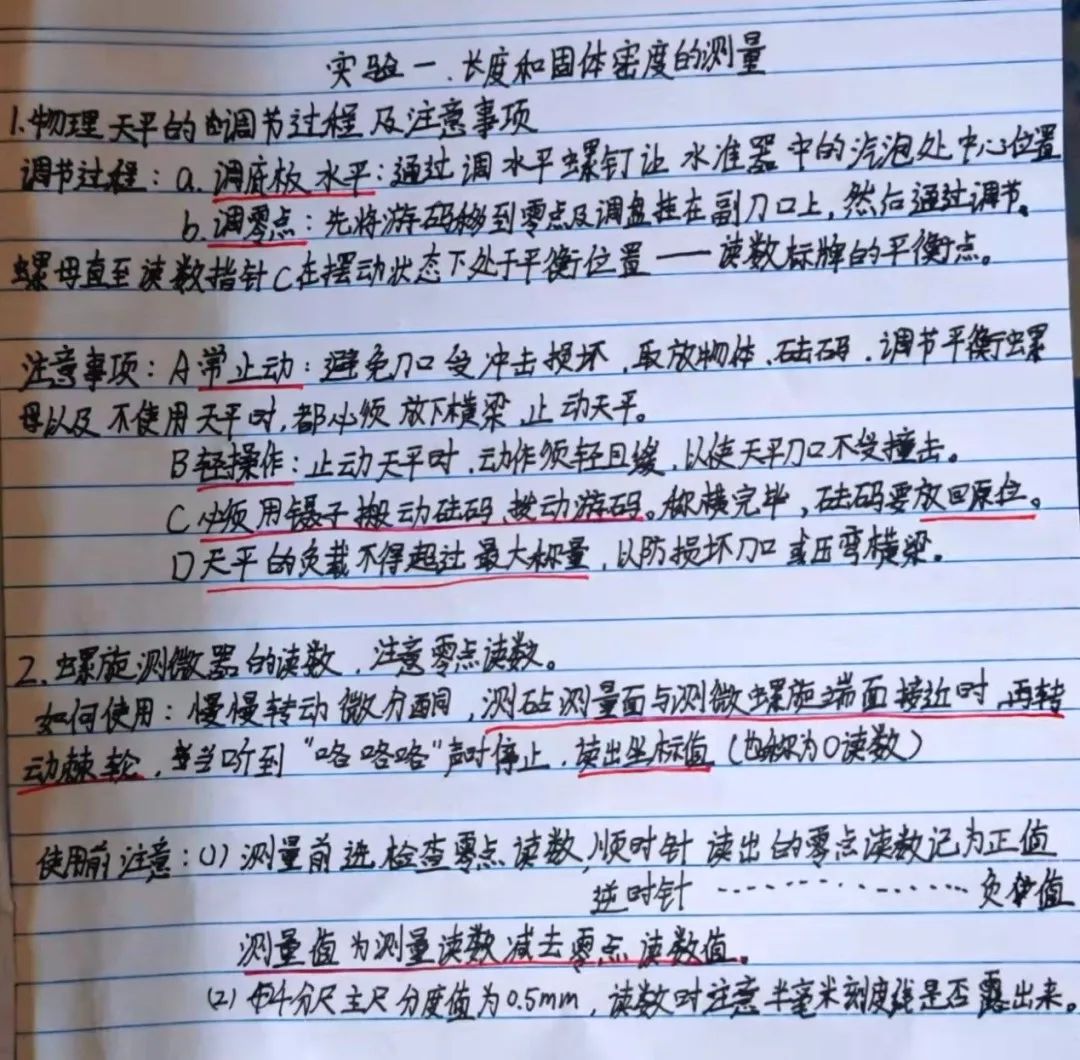 实验一、长度和固体密度的测量
1.物理天平的调节过程及注意事项
调节过程：a.调底板水平：通过调水平螺钉让水准器中的汽泡处中心位置
b.调零点：先将游码移到零点及调盘挂在副刀口上，然后通过调节
螺母直至读数指针C在摆动状态下处于平衡位置——读数标牌的平衡点。
注意事项：A常止动：避免刀口受冲击损坏，取放物体、砝码、调节平衡螺
母以及不使用天平时，都必须放下横梁，止动天平。
B轻操作：止动天平时，动作须轻且缓，以使天平刀口不受撞击。
C必须用镊子搬动砝码、拨动游码。称横完毕，砝码要放回原位。
D天平的负载不得超过最大称量，以防损坏刀口或压弯横梁。
2.螺旋测微器的读数，注意零点读数。
如何使用：慢慢转动微分酮，测砧测量面与测微螺旋端面接近时，再转
动棘轮，当听到“咯咯咯”声时停止，读出坐标值（也称为0读数）
使用前注意：(1)测量前进检查零点读数，顺时针读出的零点读数记为正值
逆时针…………负值
测量值为测量读数减去零点读数值。
(2)千分尺主尺分度值为0.5mm，读数时注意半毫米刻度线是否露出来。